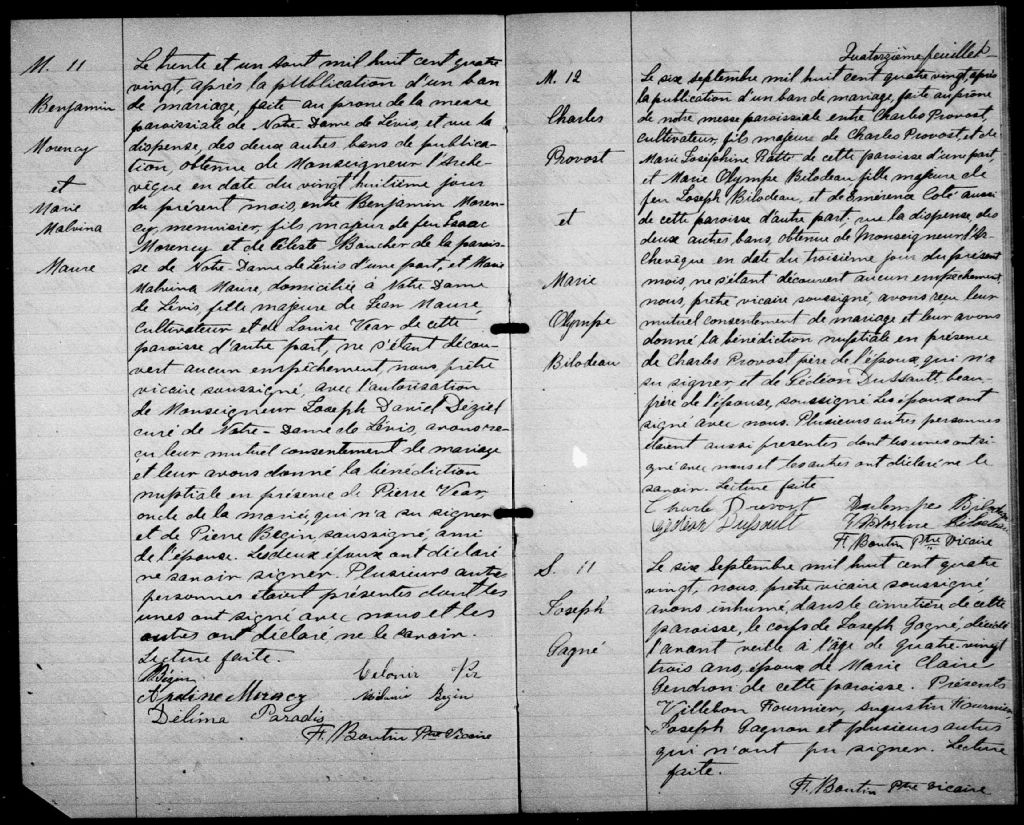 M. 11
Benjamin
Morency
et
Marie
Malvina
Maure
Le trente et un août mil huit cent quatre
vingt, après la publication d'un ban
de mariage, faite au prone de la messe
paroissiale de Notre-Dame de Lévis, et vu la
dispense, des deux autres bans de publica-
tion, obtenue de Monseigneur l'Arche-
vêque en date du vingt huitième jour
du présent mois, entre Benjamin Moren-
cy, menuisier, fils majeur de feu Isaac
Morency et de Céleste Baucher de la parois-
se de Notre-Dame de Lévis d'une part, et Marie
Malvina Maure, domiciliée à Notre-Dame
de Lévis, fille majeure de Jean Maure,
Cultivateur et de Louise Vear de cette
paroisse d'autre part, ne s'étant décou-
vert aucun empêchement, nous prêtre
vicaire soussigné, avec l'autorisation
de Monseigneur Joseph David Déziel
curé de Notre-Dame de Lévis, avons re-
çu leur mutuel consentement de mariage
et leur avons donné la bénédiction
nuptiale en présence de Pierre Vear,
oncle de la mariée, qui n'a su signer
et de Pierre Begin, soussigné, ami
de l'épouse. Les deux époux ont déclaré
ne savoir signer. Plusieurs autres
personnes étaient présentes dont les
unes ont signé avec nous et les
autres ont déclaré ne le savoir.
Lecture faite.
PBégin
Melanie Begin
Délima Paradis
Ft. Boutin Ptre Vicaire
Quatorzième feuillet
M. 12
Charles
Provost
et
Marie
Olympe
Bilodeau
Le six septembre mil huit cent quatre vingt, après
la publication d'un ban de mariage, faite au prône
de notre messe paroissiale entre Charles Provost,
cultivateur, fils majeure de Charles Provost, et de
Marie Joséphine Ratté de cette paroisse d'une part,
et Marie Olympe Bilodeau fille majeure de
feu Joseph Bilodeau, et de Emerence Coté aussi
de cette paroisse d'autre part. vu la dispense des
deux autres bans, obtenue de Monseigneur l'Ar-
chevêque en date du troisième jour du présent
mois, ne s'étant découvert aucun empêchement,
nous, prêtre vicaire soussigné, avons reçu leur
mutuel consentement de mariage et leur avons
donné la bénédiction nuptiale en présence
de Charles Provost père de l'époux, qui n'a
su signer et de Gédéon Dussault, beau-
père de l'épouse, soussigné. Les époux ont
signé avec nous. Plusieurs autres personnes
étaient aussi presentes dont les unes ont si-
gné avec nous et les autres ont déclaré ne le
savoir. Lecture faite
Charle Prevost
Gedéon Dussault
Ft. Boutin Ptre Vicaire
S. 11
Joseph
Gagné
Le six Septembre mil huit cent quatre
vingt, nous, prêtre vicaire soussigné,
avons inhumé, dans le cimetière de cette
paroisse, le corps de Joseph Gagné, décédé
l'avant veille à l'âge de quatre-vingt
trois ans, époux de Marie Claire
Gendron de cette paroisse. Présents
Villebon Fournier, Augustin Fournier,
Joseph Gagnon et plusieurs autres
qui n'ont pu signer. Lecture
faite.
Ft. Boutin Ptre Vicaire